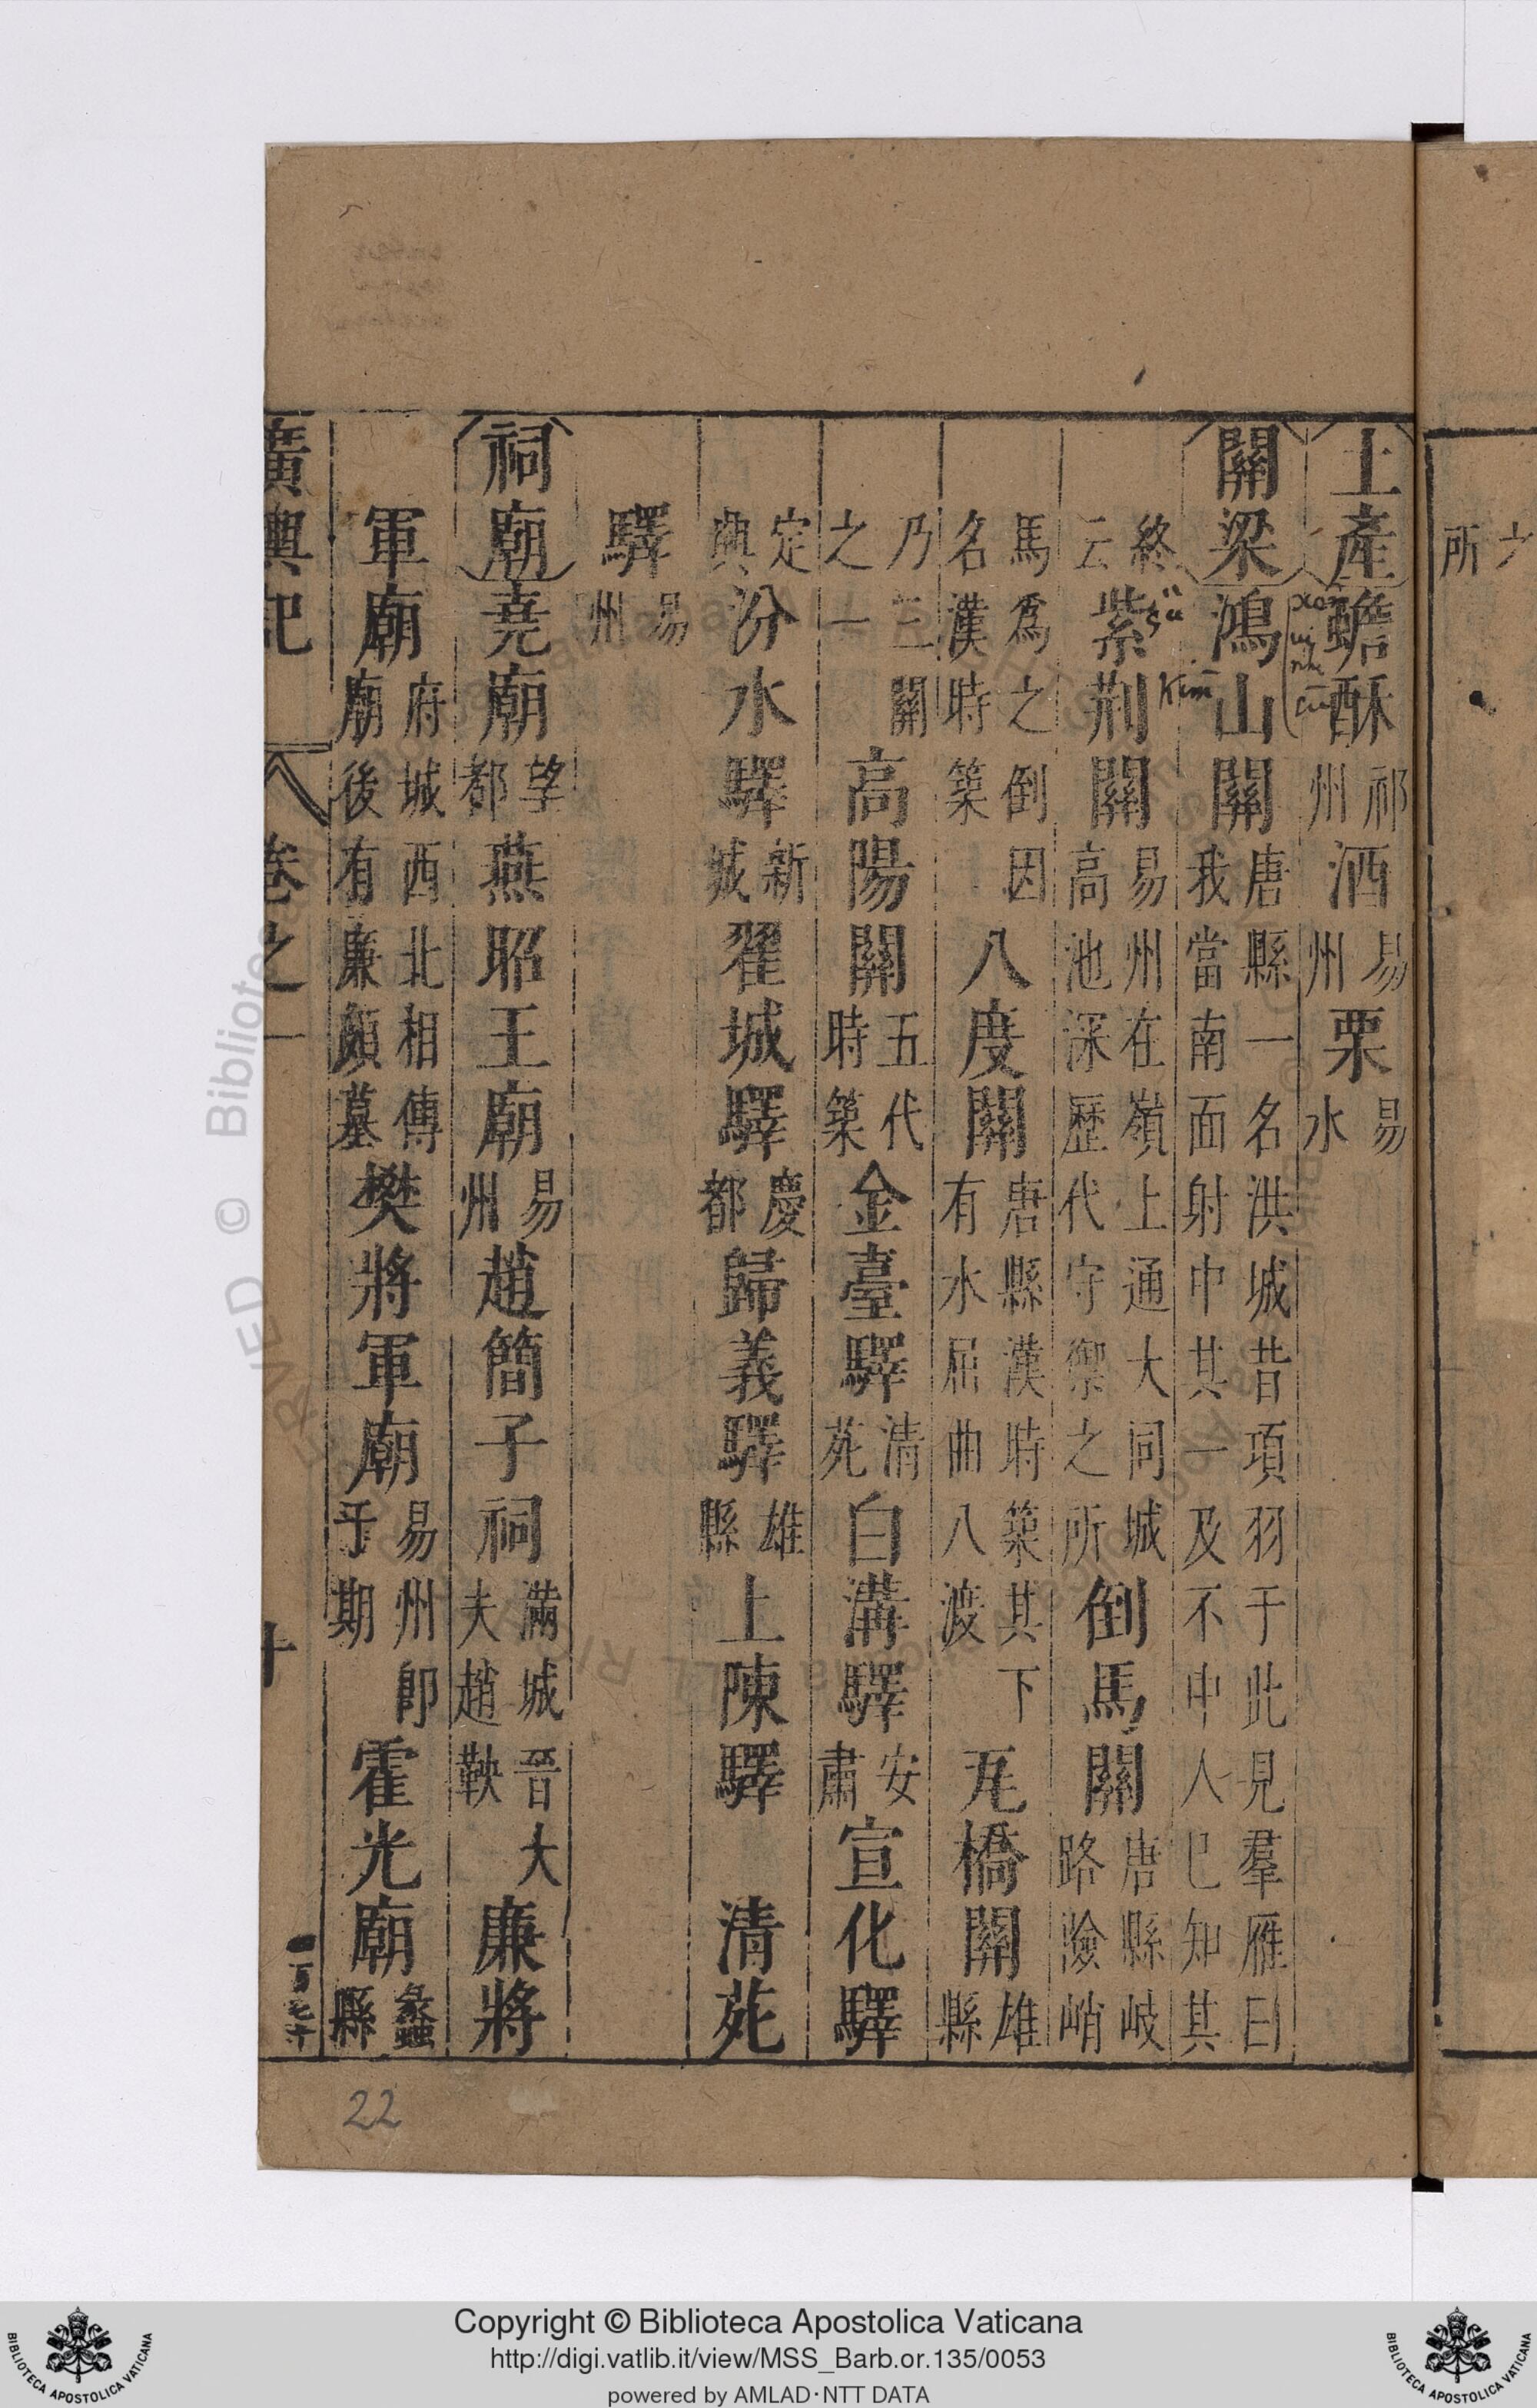 土產蟾酥祁州酒易州栗易水
關梁鴻山關唐縣一名洪城昔項羽于此見羣雁曰我當南面射中其一及不中人巳知其
終云紫荆關易州在嶺上通大同城高池深歷代守禦之所倒馬關唐縣岐路險峭
馬爲之倒因名漢時築八度關唐縣漢時築其下有水屈曲八渡瓦橋關雄縣
乃三關之一高陽關五代時築金臺驛清苑白溝驛安肅宣化驛
定興汾水驛新城翟城驛慶都歸義驛雄縣上陳驛清苑
驛易州
祠廟堯廟望都燕昭王廟易州趙簡子祠滿城晉大夫趙鞅廉將
軍廟府城西北相傳廟後有廉頗墓樊將軍廟易州卽於期霍光廟蠡縣
廣輿記 卷之一 十
所
22
Copyright © Biblioteca Apostolica Vaticana
http://digi.vatlib.it/view/MSS_Barb.or.135/0053
powered by AMLAD·NTT DATA
BIBLIOTECA APOSTOLICA VATICANA
BIBLIOTECA APOSTOLICA VATICANA